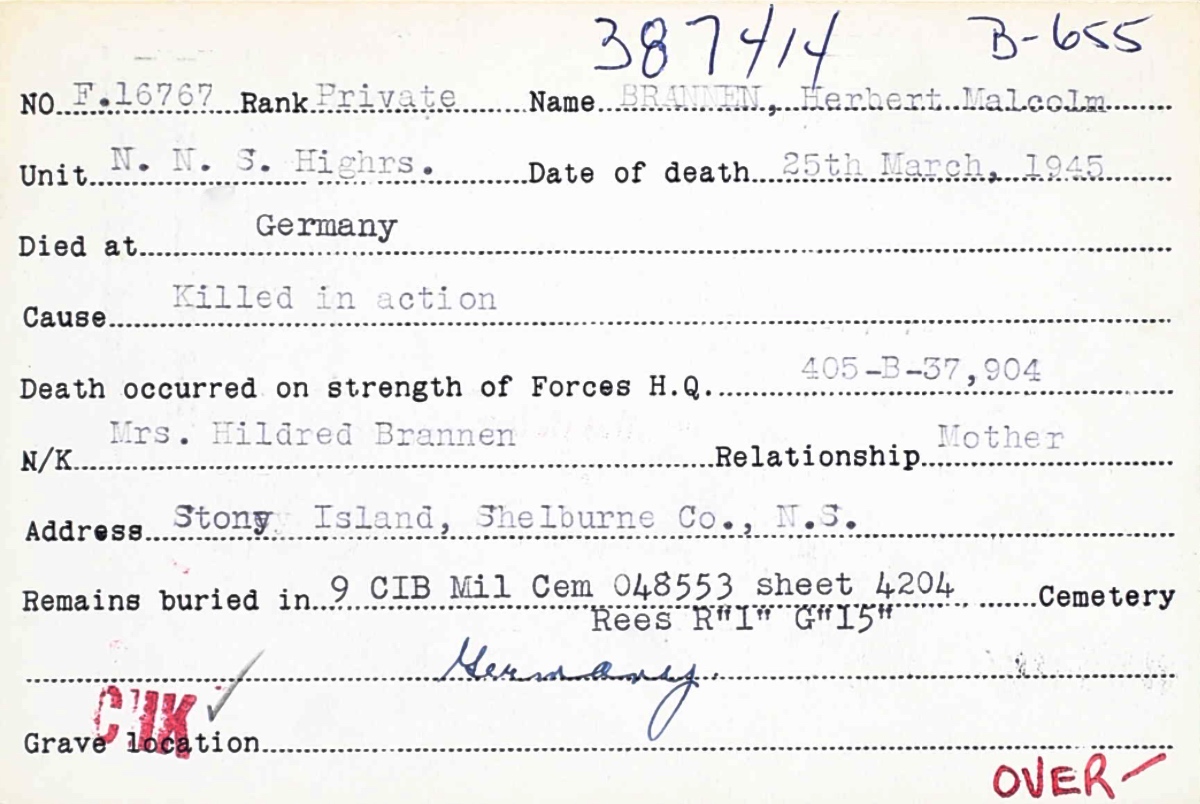 387414 B-655
NO F.16767 Rank Private Name BRANNEN, Herbert Malcolm
Unit N. N. S. Highrs. Date of death 25th March, 1945
Died at Germany
Cause Killed in action
Death occurred on strength of Forces H.Q. 405-B-37,904
N/K Mrs. Hildred Brannen Relationship Mother
Address Stony Island, Shelburne Co., N.S.
Remains buried in 9 CIB Mil Cem 048553 sheet 4204 Cemetery
Rees R"I" G"15"
Germany.
Grave location
OVER